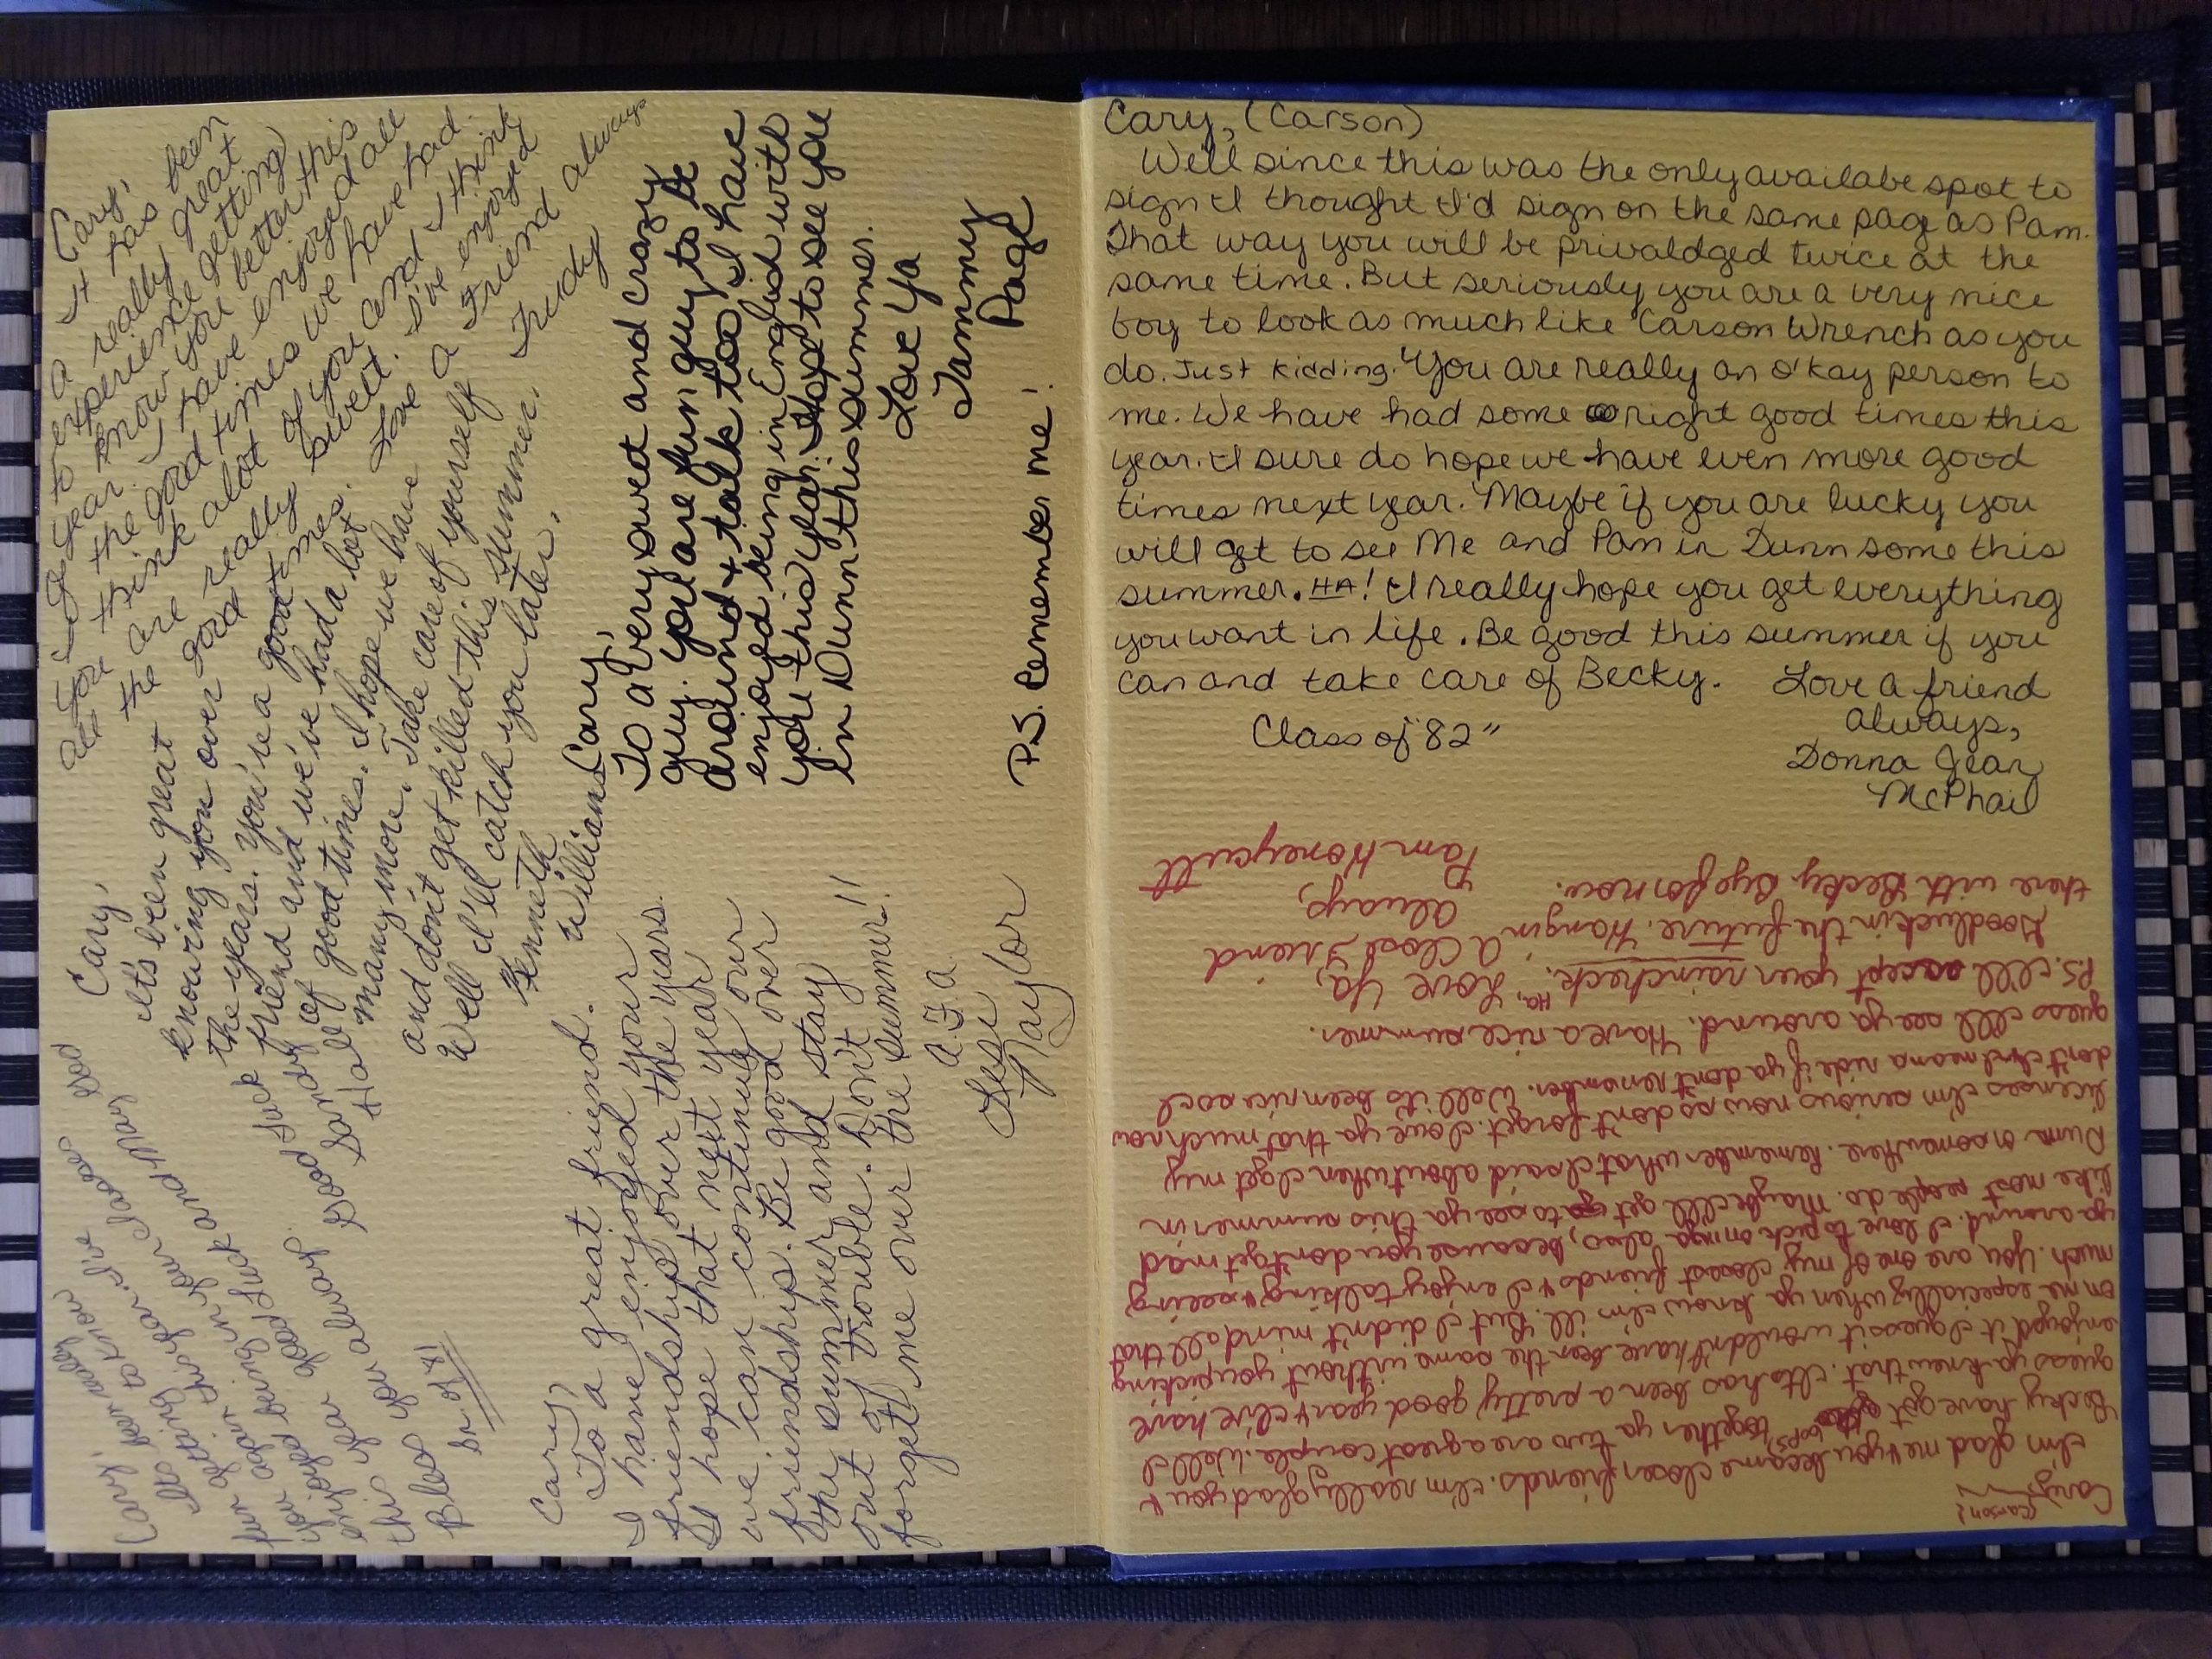 Cary,
It has been
a really great
experience getting
to know you better this
year. I have enjoyed all
the good times we have had.
I think alot of you and I think
you are really sweet. I've enjoyed
all the good times.
Love a Friend always
Trudy
Cary,
It's been great
knowing you over
the years. You're a good
friend and we've had a lot
of good times. I hope we have
many more. Take care of yourself
and don't get killed this summer.
Well I'll catch you later.
Kenneth
Williams
Cary,
To a very sweet and crazy
guy. You are fun guy to be
around & talk too. I have
enjoyed being in English with
you this year. Hope to see you
in Dunn this summer.
Love Ya
Tammy
Page
P.S. Remember me!
Cary, I've
been to know
this year. I've
for again being in
your good Luck and
enjoyed good Luck
this year always
Good Luck
Sandy
Hall
God
Bless you
Sr. of 81
Cary,
To a great friend.
I have enjoyed your
friendship over the years.
I hope that next year
we can continue our
friendship. Be good over
the summer and stay
out of trouble. Don't
forget me over the summer!!
A.F.A.
Naylor
Cary, (Carson)
Well since this was the only availabe spot to
sign I thought I'd sign on the same page as Pam.
That way you will be privaldged twice at the
same time. But seriously you are a very nice
boy to look as much like Carson Wrench as you
do. Just kidding. You are really an o'kay person to
me. We have had some right good times this
year. I sure do hope we have even more good
times next year. Maybe if you are lucky you
will get to see Me and Pam in Dunn some this
summer. HA! I really hope you get everything
you want in life. Be good this summer if you
can and take care of Becky. Love a friend
always,
Class of "82" Donna Jean
McPhail
Cary, (Carson!)
I'm glad me & you became closer friends. I'm really glad you &
Becky have got (oops) together ya two are a great couple. Well I
guess ya knew that. It's has been a pretty good year & I've have
enjoyed it. I guess it wouldn't have been the same without you picking
on me especially when ya know I'm ill. But I didn't mind all that
much. You are one of my closest friends & I enjoy talking & seeing
ya around. I love to pick on ya also, because you don't get mad
like most people do. Maybe I'll get to see ya this summer in
Dunn or somewhere. Remember what I said about when I get my
licenses I'm serious now so don't forget. I owe ya that much now
don't I? mean a ride if ya don't remember. Well its been nice so I
guess I'll see ya around. Have a nice summer.
P.S. I'll accept your raincheck. Ha, Love Ya,
Goodluck in the future. Hangin A Close Friend
there with Becky. Bye for now. Always,
Pam Honeycutt